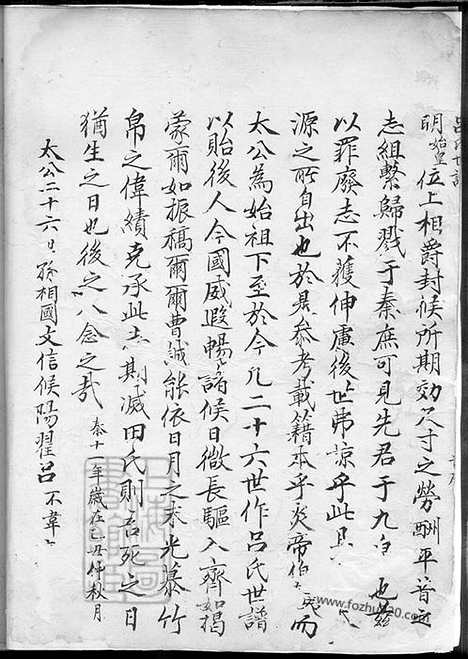 呂氏世譜
明始皇位上相爵封候所期效尺寸之勞酬平昔之
志組繫歸戮于秦庶可見先君于九 也茲
以罪廢志不獲伸慮後世弗諒乎此具
源之所自出也於是參考載籍本乎炎帝伯 而
太公為始祖下至於今凡二十六世作呂氏世譜
以貽後人今國威遐暢諸候日微長驅入齊如揭
蒙爾如振槁爾爾曹誠能依日月之末光慕竹
帛之偉績克承此志期滅田氏則吾死之日
猶生之日也後之人念之哉 秦十一年歲在乙丑仲秋月
太公二十六世孫相國文信候陽翟呂不韋
www.fozhu920.com